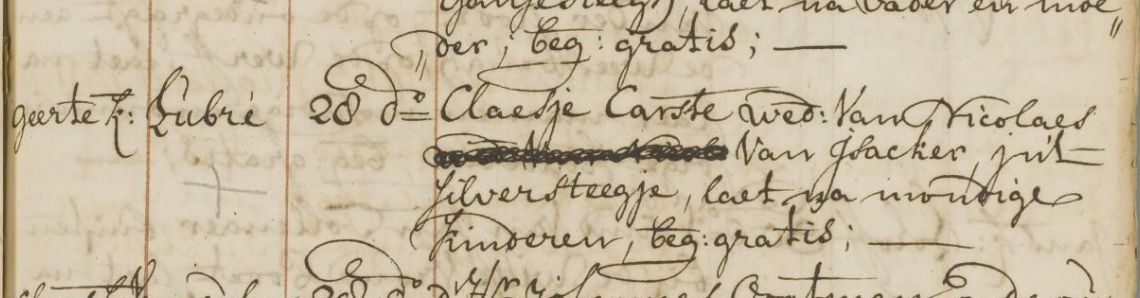 laet na vader en moe„
„der, beg: gratis; —
geerte k: Lubré 28 do Claesje Carste wed: van Nicolaes
van Jsacker, jn't
silversteegje, laet na mondige
kinderen, beg: gratis; —